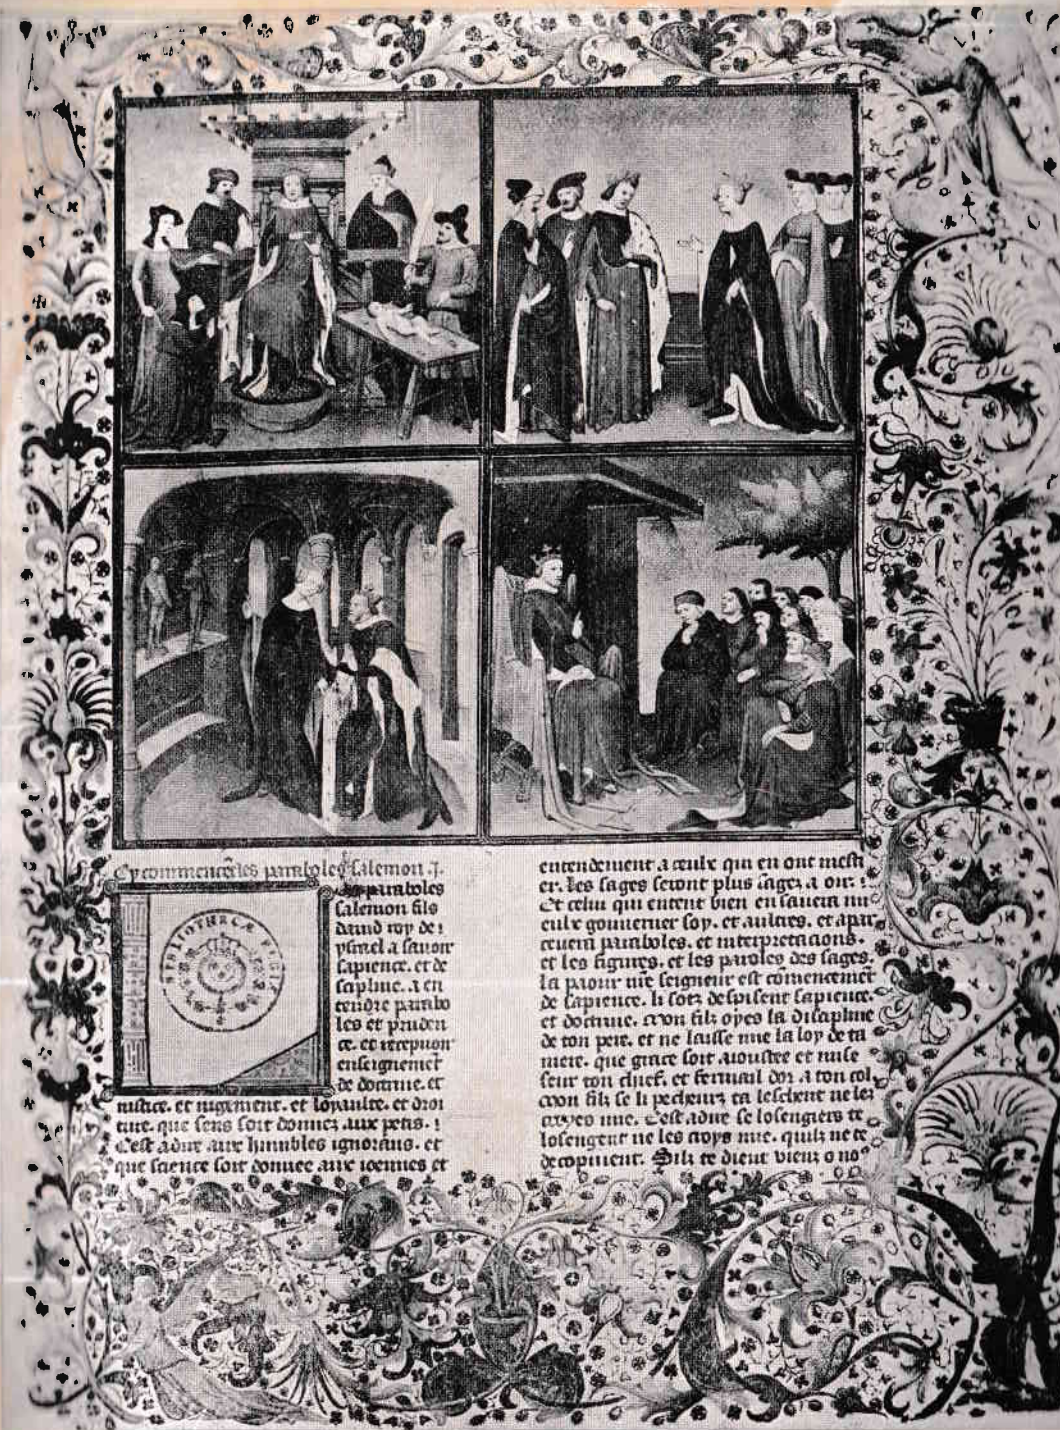 Cy commencēt les paraboles salemon .J.
Les paraboles
salemon filz
dauid roy de
ysrael a sauoir
sapience. et de
sapline. a en
tendre parabo
les et pruden
ce. et reception
enseignemēt
de doctrine. et
iustice. et iugement. et loyaulte. et droi
ture. que sens soit donnez aux petis.
Cest adire aux humbles ignorans. et
que science soit donnee aux ioennes et
entendement a ceulx qui en ont mesti
er. Les sages seront plus sages a oir.
Et celui qui entent bien en saura
eulx gouuerner soy. et aultres. et apar
ceuera paraboles. et interpretacions.
et les figures. et les paroles des sages.
la paour n̄re seigneur est cōmencemēt
de sapience. li sotz despisent sapience.
et doctrine. mon filz oyes la discipline
de ton pere. et ne laisse mie la loy de ta
mere. que grace soit aioustee et mise
seur ton chief. et fermail dor a ton col.
mon filz se li pecheurs ta leschent ne les
croyes mie. Cest adire se losengiers te
losengent ne les croys mie. quilz ne te
decoipuent. Silz te dient vien o no⁹
BIBLIOTHECÆ REGIÆ